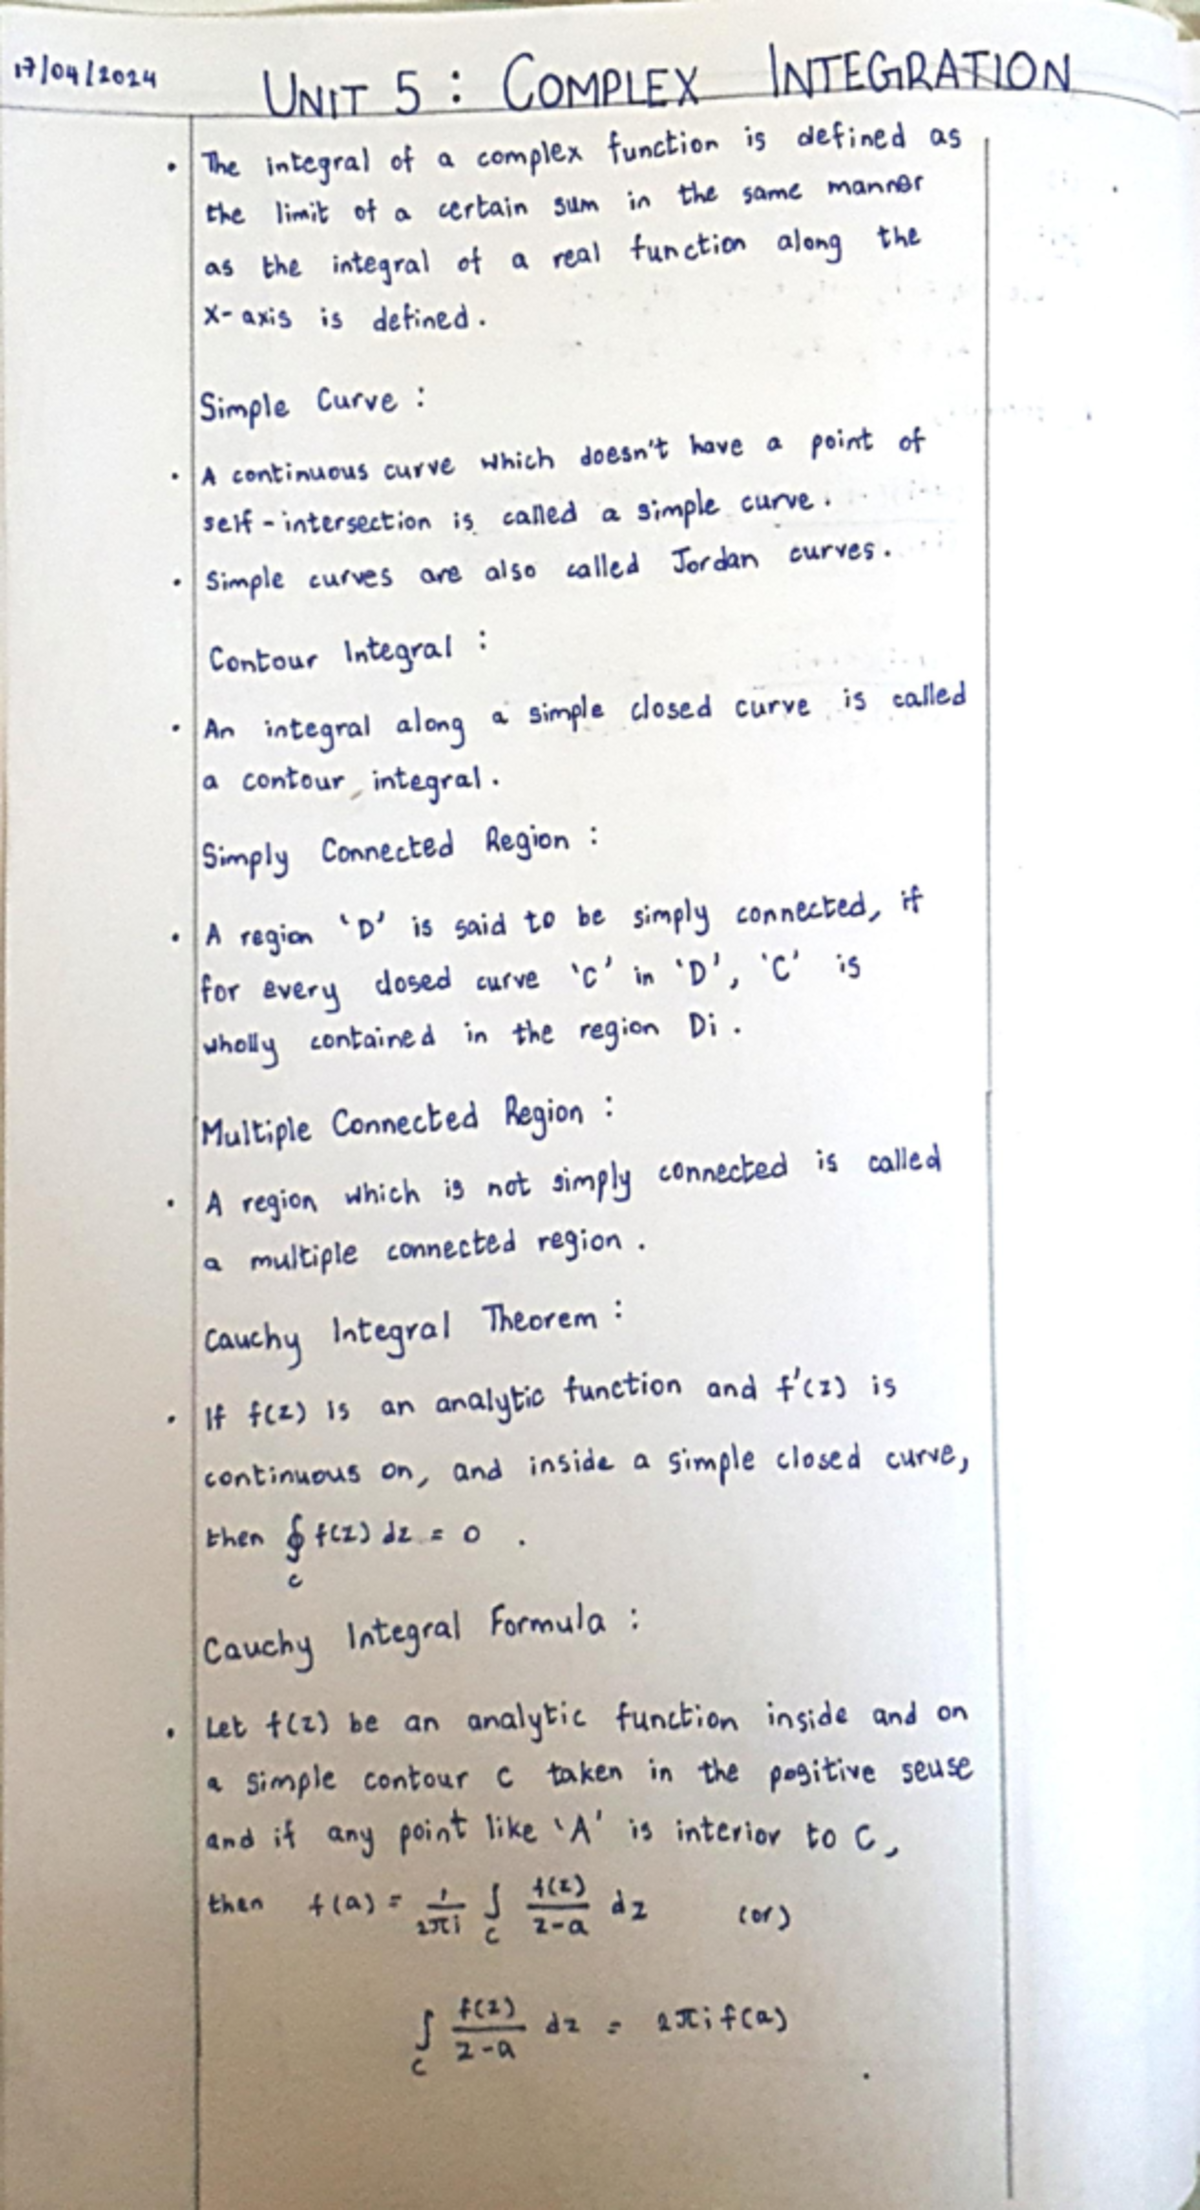 17/04/2024
UNIT 5 : COMPLEX INTEGRATION
• The integral of a complex function is defined as
the limit of a certain sum in the same manner
as the integral of a real function along the
X-axis is defined.
Simple Curve :
• A continuous curve which doesn't have a point of
self-intersection is called a simple curve.
• Simple curves are also called Jordan curves.
Contour Integral :
• An integral along a simple closed curve is called
a contour integral.
Simply Connected Region :
• A region 'D' is said to be simply connected, if
for every closed curve 'C' in 'D', 'C' is
wholly contained in the region Di.
Multiple Connected Region :
• A region which is not simply connected is called
a multiple connected region.
Cauchy Integral Theorem :
• If f(z) is an analytic function and f'(z) is
continuous on, and inside a simple closed curve,
then ∮_C f(z) dz = 0 .
Cauchy Integral Formula :
• Let f(z) be an analytic function inside and on
a simple contour C taken in the positive seuse
and if any point like 'A' is interior to C,
then f(a) = 1/2πi ∫_C f(z)/z-a dz (or)
∫_C f(z)/z-a dz = 2πi f(a)